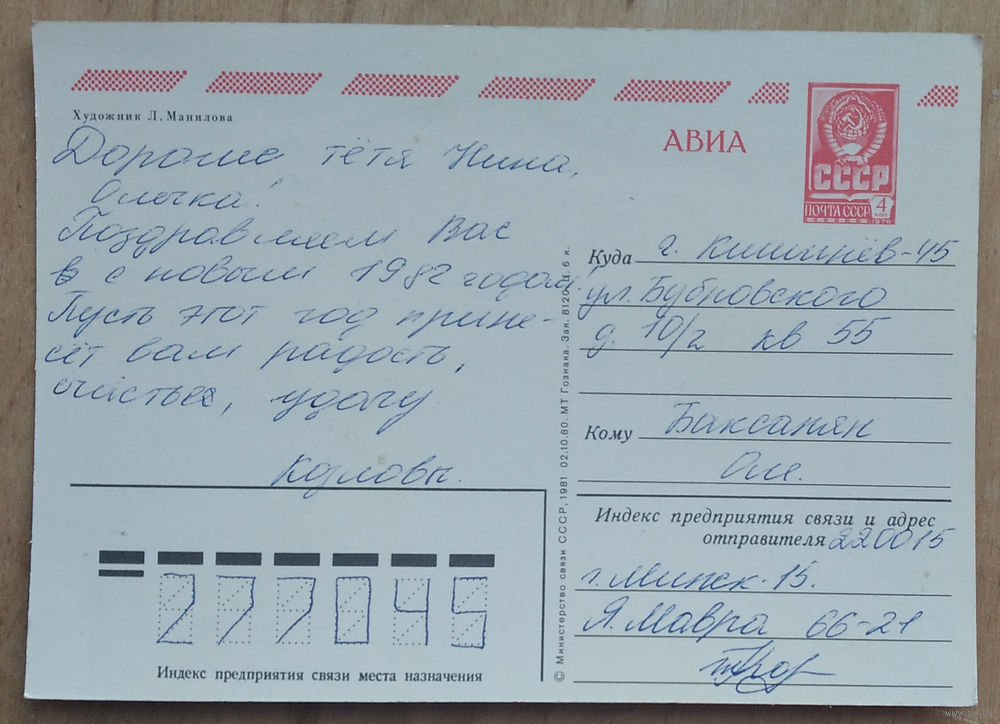 Художник Л. Манилова
АВИА
СССР
ПОЧТА СССР
4
КОП
1976
Дорогие тётя Нина,
Олечка!
Поздравляем Вас
с новым 1982 годом.
Пусть этот год прине-
сёт вам радость,
счастье, удачу
Козловы.
Куда г. Кишинёв-45
ул. Бубновского
д. 10/2 кв 55
Кому Баксанян
Оле.
Индекс предприятия связи и адрес
отправителя 220015
г. Минск-15.
Я. Мавра 66-21
277045
Индекс предприятия связи места назначения
© Министерство связи СССР, 1981 02.10.80. МТ Гознака. Зак. 8120. Ц. 6 к.